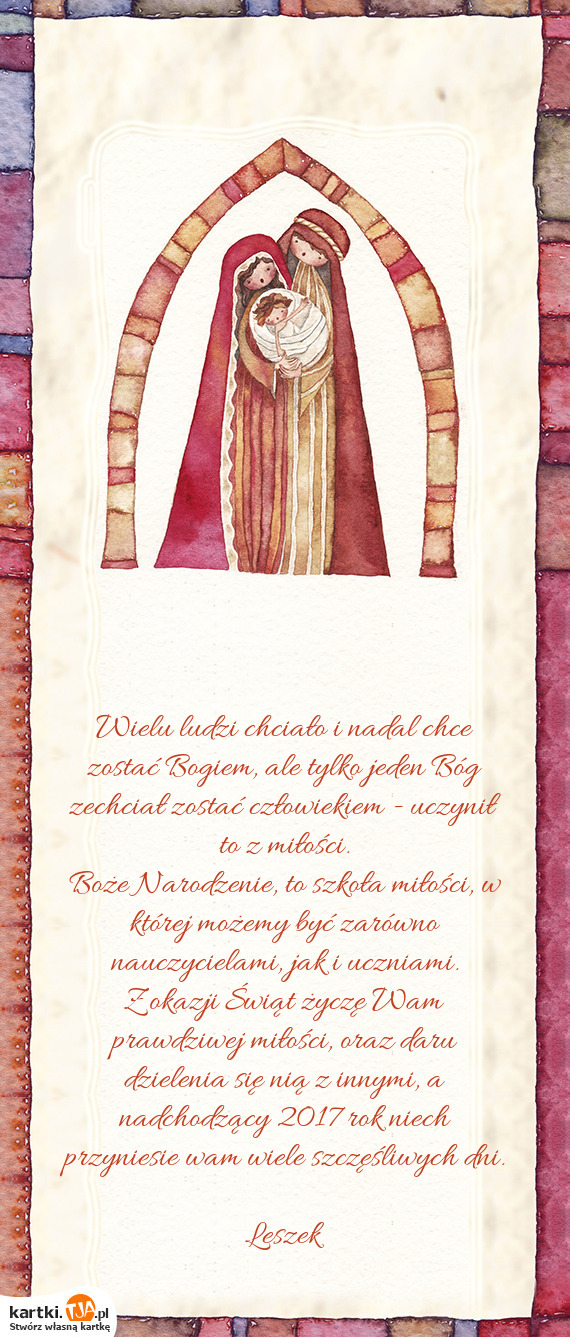 Wielu ludzi chciało i nadal chce
zostać Bogiem, ale tylko jeden Bóg
zechciał zostać człowiekiem - uczynił
to z miłości.
Boże Narodzenie, to szkoła miłości, w
której możemy być zarówno
nauczycielami, jak i uczniami.
Z okazji Świąt życzę Wam
prawdziwej miłości, oraz daru
dzielenia się nią z innymi, a
nadchodzący 2017 rok niech
przyniesie wam wiele szczęśliwych dni.
Leszek
kartki.TJA.pl
Stwórz własną kartkę